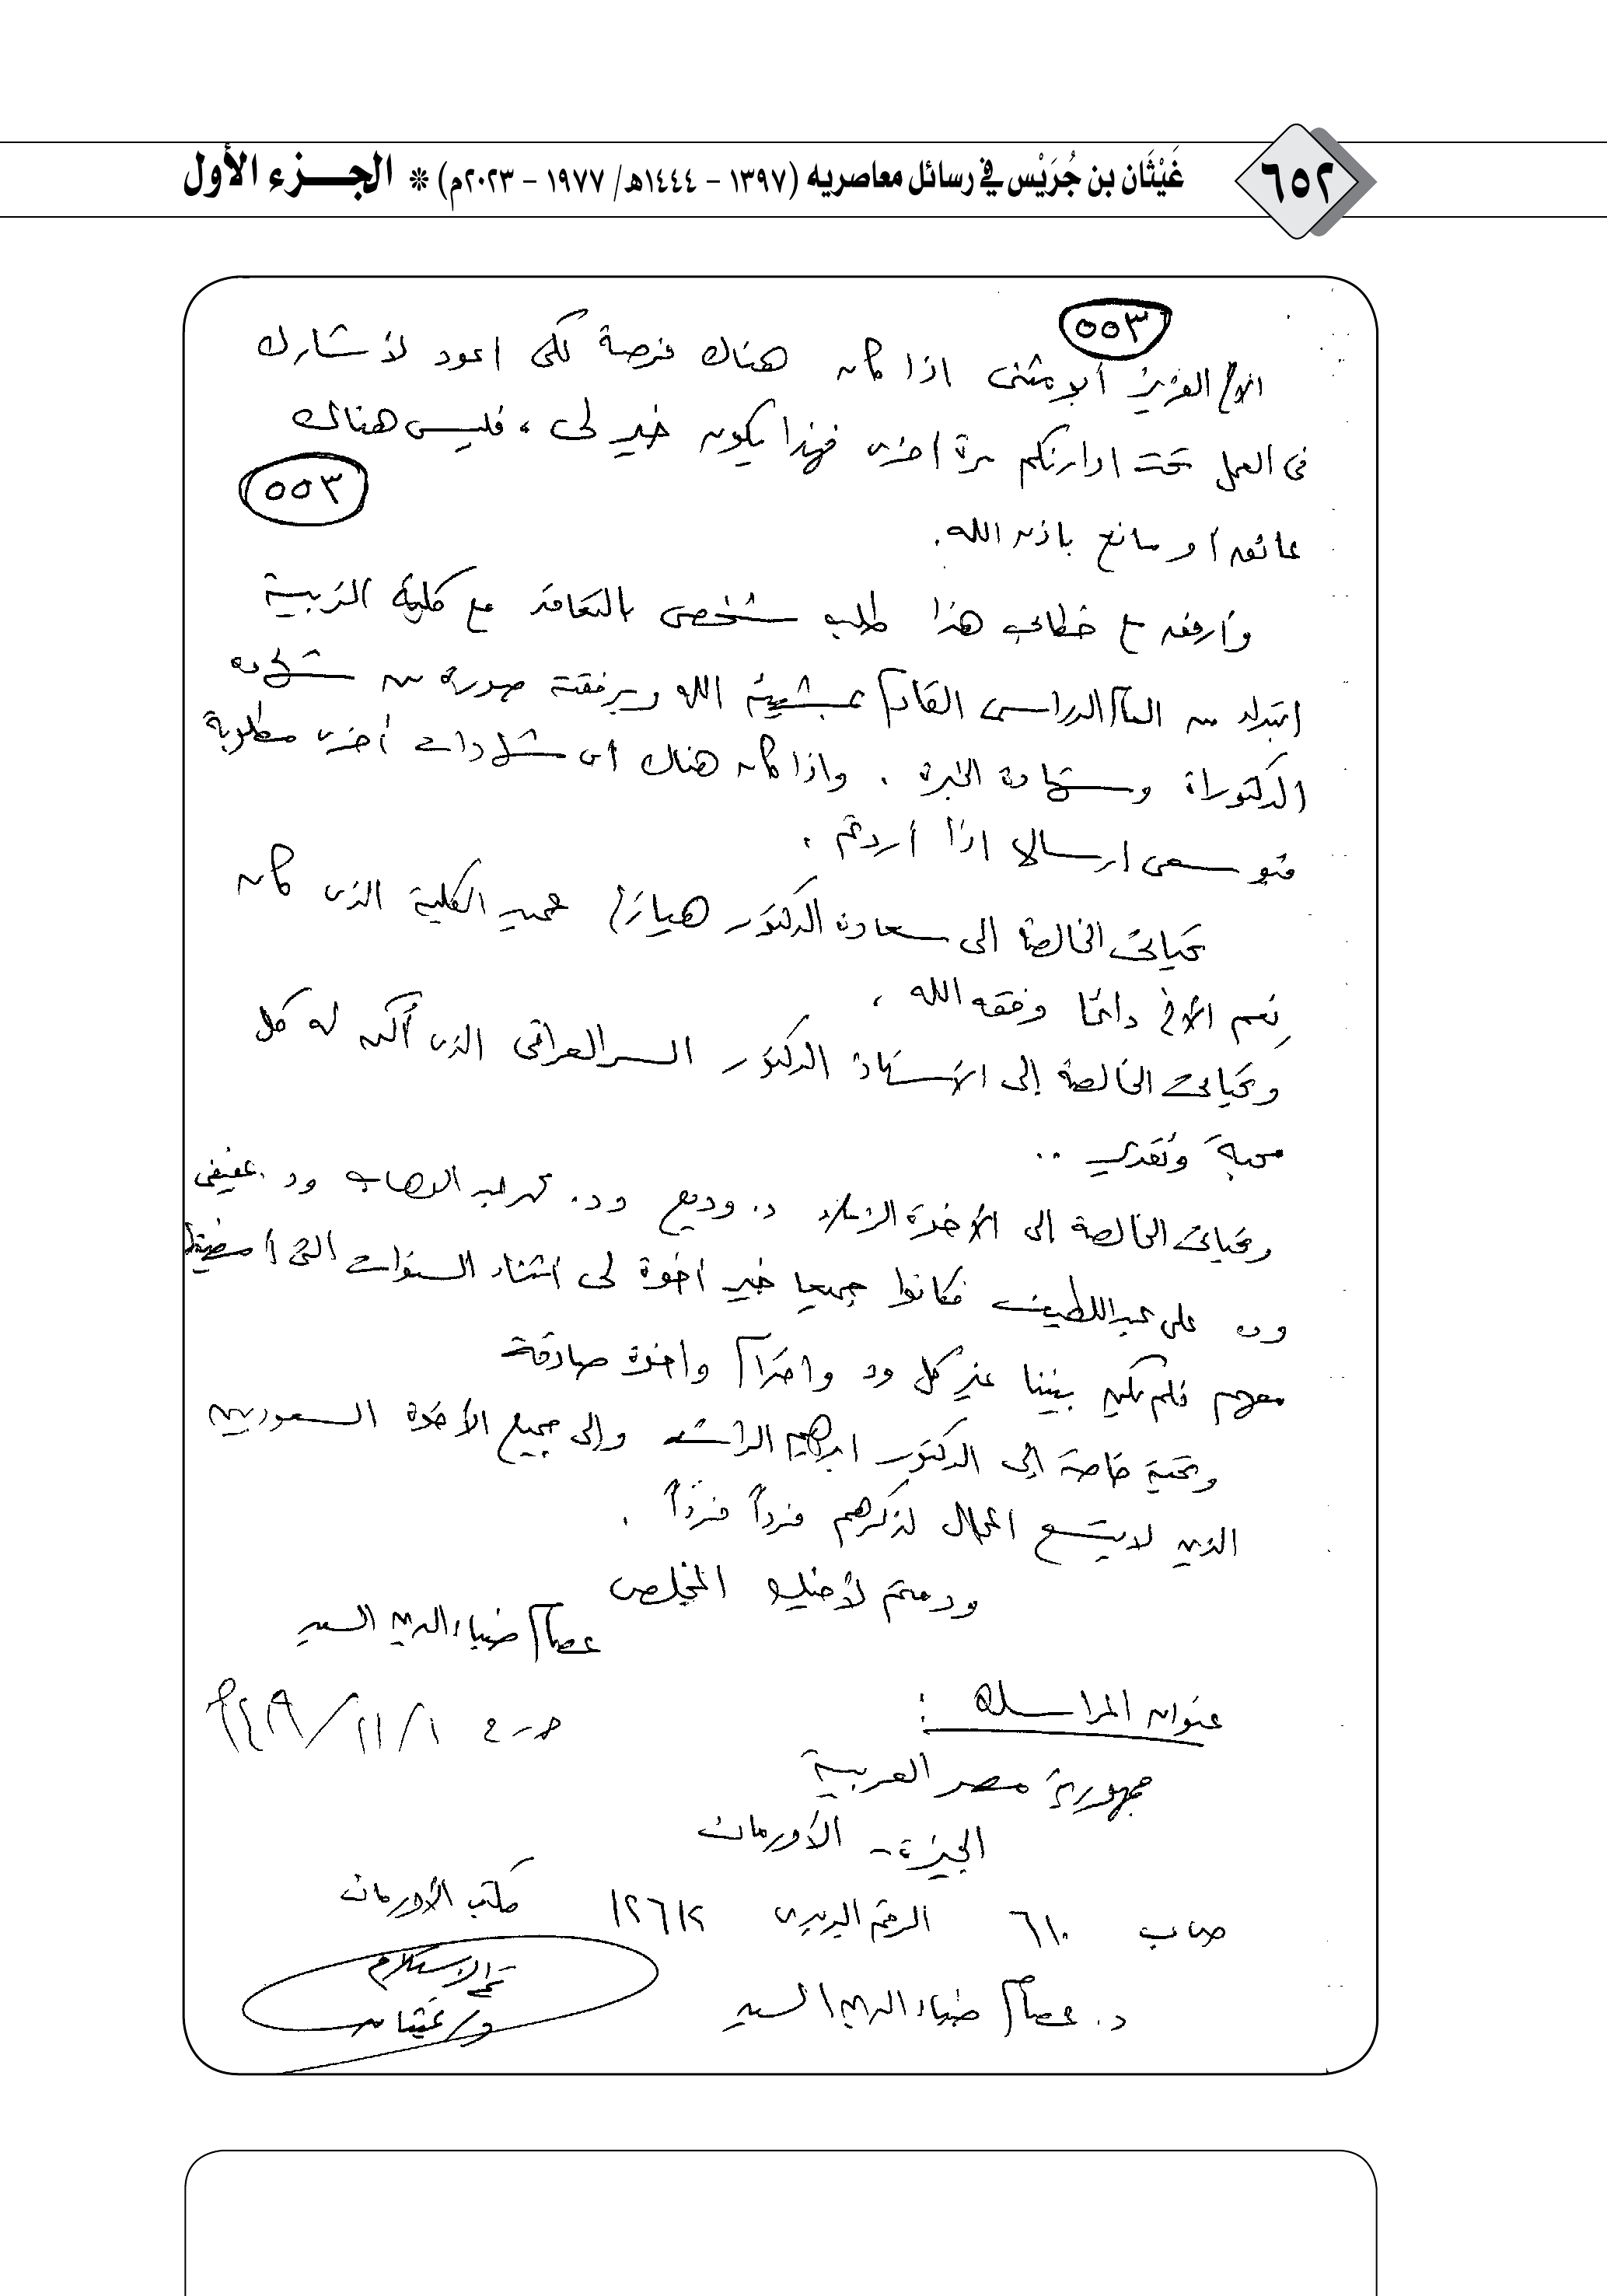 ٦٥٢
غَيْثَان بن جُرَيْس في رسائل معاصريه (١٣٩٧ - ١٤٤٤هـ/ ١٩٧٧ - ٢٠٢٣م) * الجزء الأول
٥٥٣
الأخ العزيز أبو مثنى اذا كان هناك فرصة لكى اعود لأشارك
فى العمل تحت ادارتكم مرة اخرى فهذا يكون خير لى ، فليس هناك
٥٥٣
عائق أو مانع باذن الله .
وأرفق مع خطابى هذا طلب شخصى بالتعاقد مع كلية التربية
ابتداء من العام الدراسى القادم بمشيئة الله وبرفقته صورة من شهادة
الدكتوراة وشهادة الخبرة . واذا كان هناك أى شهادات أخرى مطلوبة
ارسالها اذا أردتم .
تحياتى الخالصة الى سعادة الدكتور هيازع عميد الكلية الذى كان
نعم الأخ دائما وفقه الله ،
وتحياتى الخالصة إلى الأستاذ الدكتور السر العراقى الذى أكن له كل
محبة وتقدير ..
وتحياتى الخالصة الى الأخوة الزملاء د. وديع ود. عبد الوهاب ود. عفيفى
ود على عبد اللطيف فكانوا جميعا خير اخوة لى اثناء السنوات التى أمضيتها
معهم فلم يكن بيننا غير كل ود واحترام واخوة صادقة
وتحية خاصة إلى الدكتور ابراهيم الراشد وإلى جميع الأخوة السعوديين
الذين لا يتسع المجال لذكرهم فرداً فرداً .
ودمتم لأخيك المخلص
عصام ضياء الدين السيد
عنوان المراسلة :
جمهورية مصر العربية
الجيزة - الأورمان
ص ب ٦١٠ الرقم البريدى ١٢٦١٢ مكتب الأورمان
د. عصام ضياء الدين السيد
تم الاستلام
د/ غيثان